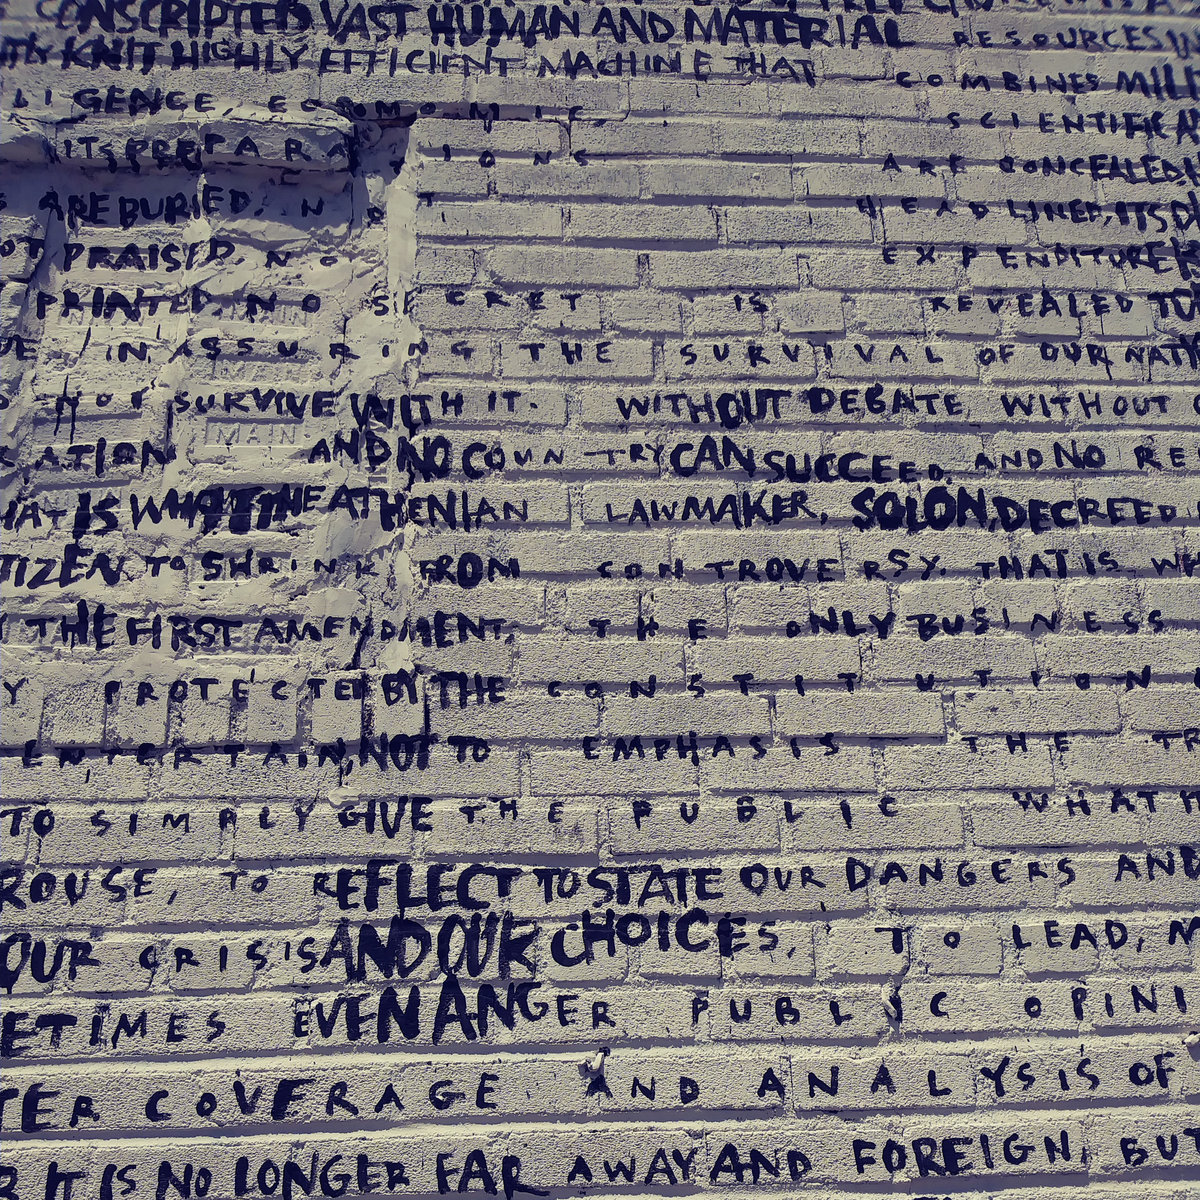 CONSCRIPTED VAST HUMAN AND MATERIAL RESOURCES IN
KNIT HIGHLY EFFICIENT MACHINE THAT COMBINES MILI
LIGENCE, ECONOMIC, SCIENTIFIC A
ITS PREPARATIONS ARE CONCEALED,
ARE BURIED, NOT HEADLINED, ITS D
OT PRAISED. NO EXPENDITURE
PRINTED, NO SECRET IS REVEALED
IN ASSURING THE SURVIVAL OF OUR NATI
NOT SURVIVE WITH IT. WITHOUT DEBATE, WITHOUT
RATION AND NO COUNTRY CAN SUCCEED, AND NO RE
HAT IS WHAT THE ATHENIAN LAWMAKER, SOLON, DECREED
TIZEN TO SHRINK FROM CONTROVERSY. THAT IS WH
THE FIRST AMENDMENT, THE ONLY BUSINESS
Y PROTECTED BY THE CONSTITUTION
ENTERTAIN, NOT TO EMPHASIS THE TR
TO SIMPLY GIVE THE PUBLIC WHAT
ROUSE, TO REFLECT TO STATE OUR DANGERS AND
OUR CRISIS AND OUR CHOICES, TO LEAD, M
ETIMES EVEN ANGER PUBLIC OPINI
TER COVERAGE AND ANALYSIS OF
R IT IS NO LONGER FAR AWAY AND FOREIGN, BUT